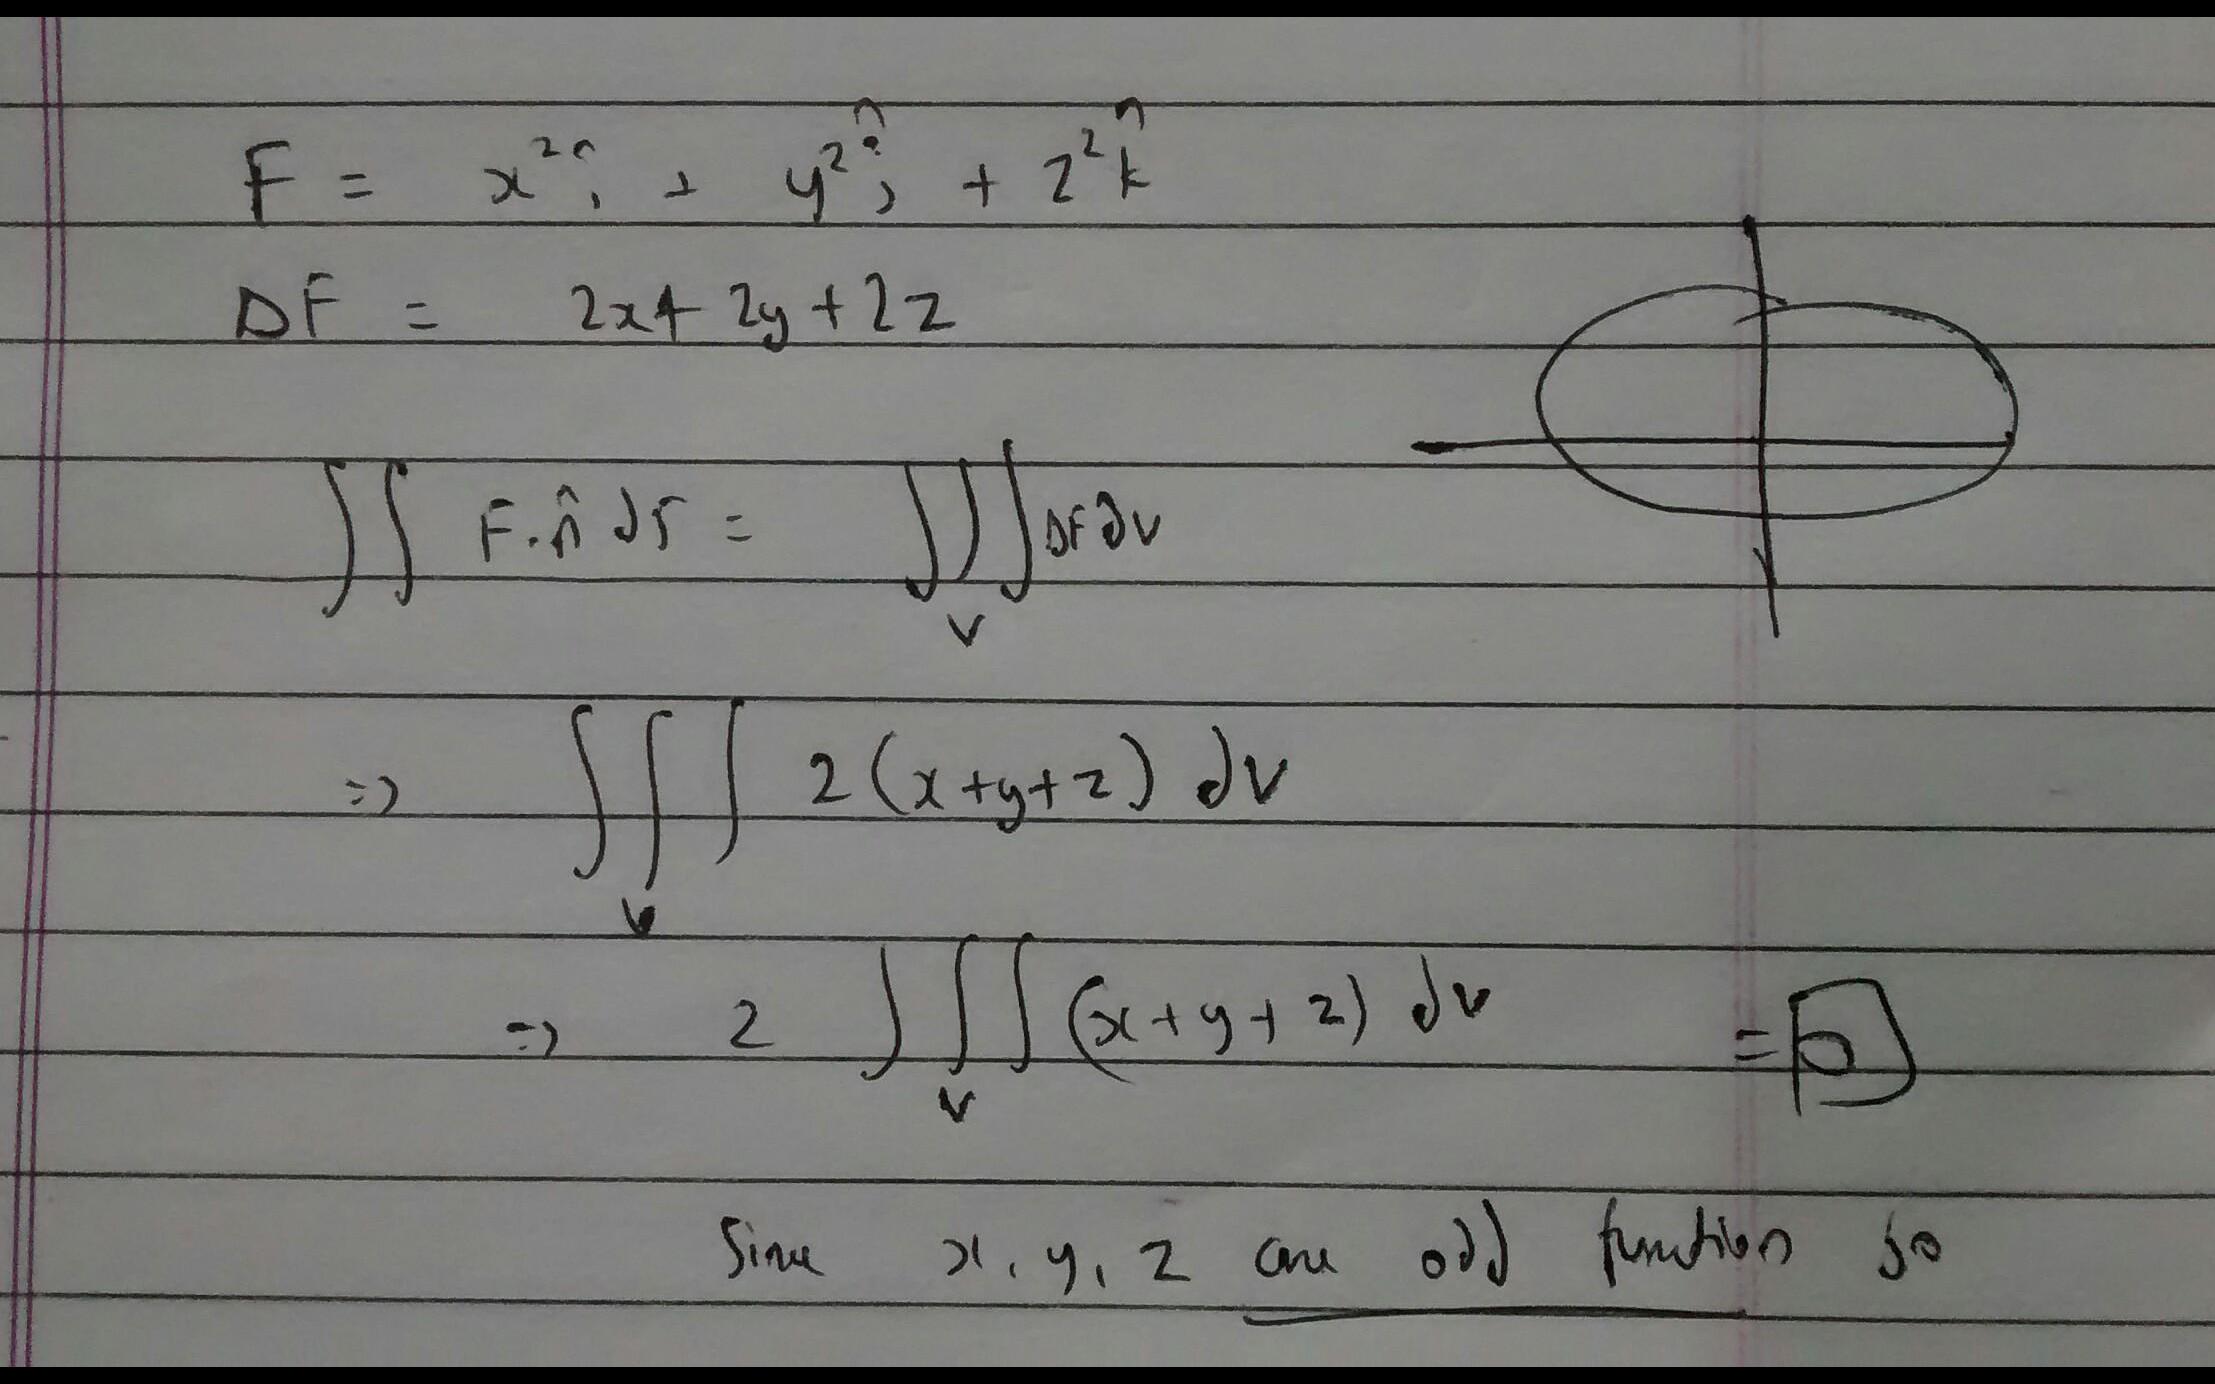 F = x² î + y² ĵ + z² k̂
DF = 2x + 2y + 2z
∫∫ F.n̂ ds = ∫∫∫_V DF dV
=> ∫∫∫_V 2(x+y+z) dV
=> 2 ∫∫∫_V (x+y+z) dV = 0
Since x, y, z are odd function so